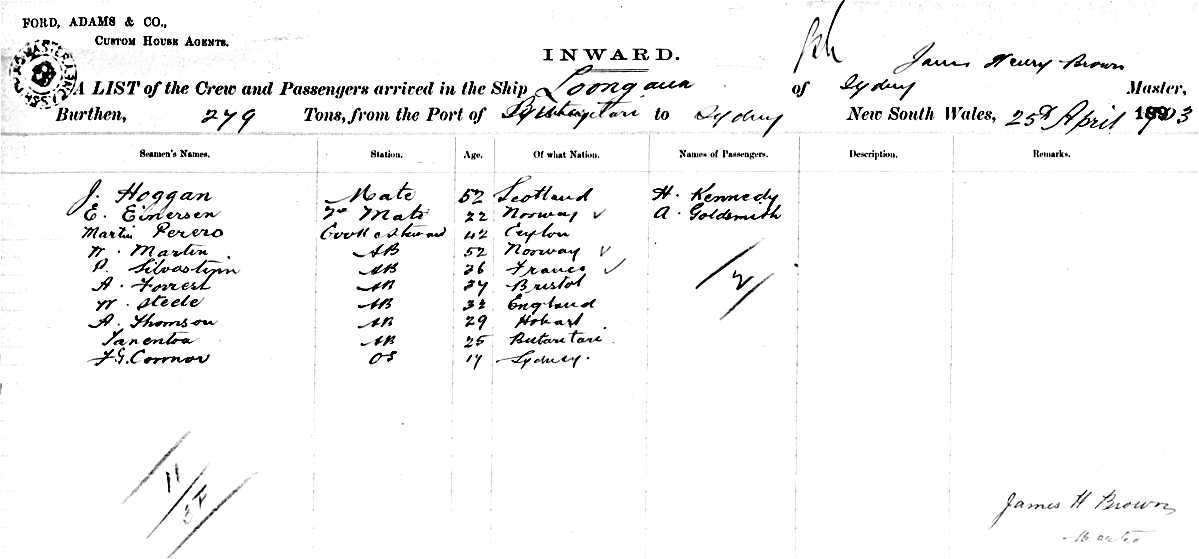 FORD, ADAMS & CO.,
CUSTOM HOUSE AGENTS.
INWARD.
James Henry Brown
A LIST of the Crew and Passengers arrived in the Ship Loongana of Sydney Master,
Burthen, 279 Tons, from the Port of Butaritari to Sydney New South Wales, 25th April 1903
Seamen's Names. Station. Age. Of what Nation. Names of Passengers. Description. Remarks.
J. Hoggan Mate 52 Scotland H. Kennedy
E. Einersen 2nd Mate 22 Norway ✓ A. Goldsmith
Martin Perero Cook & Steward 42 Ceylon
W. Martin AB 52 Norway ✓
P. AB 36 France ✓
A. Forrest AB 27 Bristol
W. Steele AB 32 England
A. Thomson AB 29 Hobart
Tanentoa AB 25 Butaritari
F.G. Connor OS 17 Sydney.
/2/
11
3F
James H Brown
Master